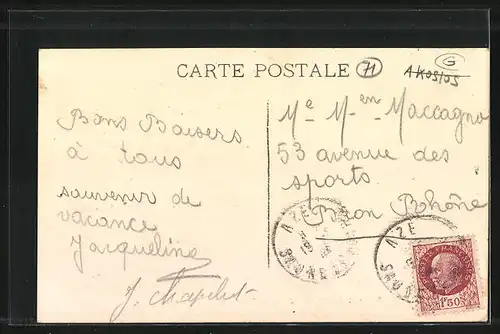 CARTE POSTALE
71
G
Bons Baisers
à tous
souvenir de
vacance
Jacqueline
J. Chapelot
Me Men Maccagno
53 avenue des
sports
Bron Rhône
AZE
SAONE
AZE
SAONE
1F50